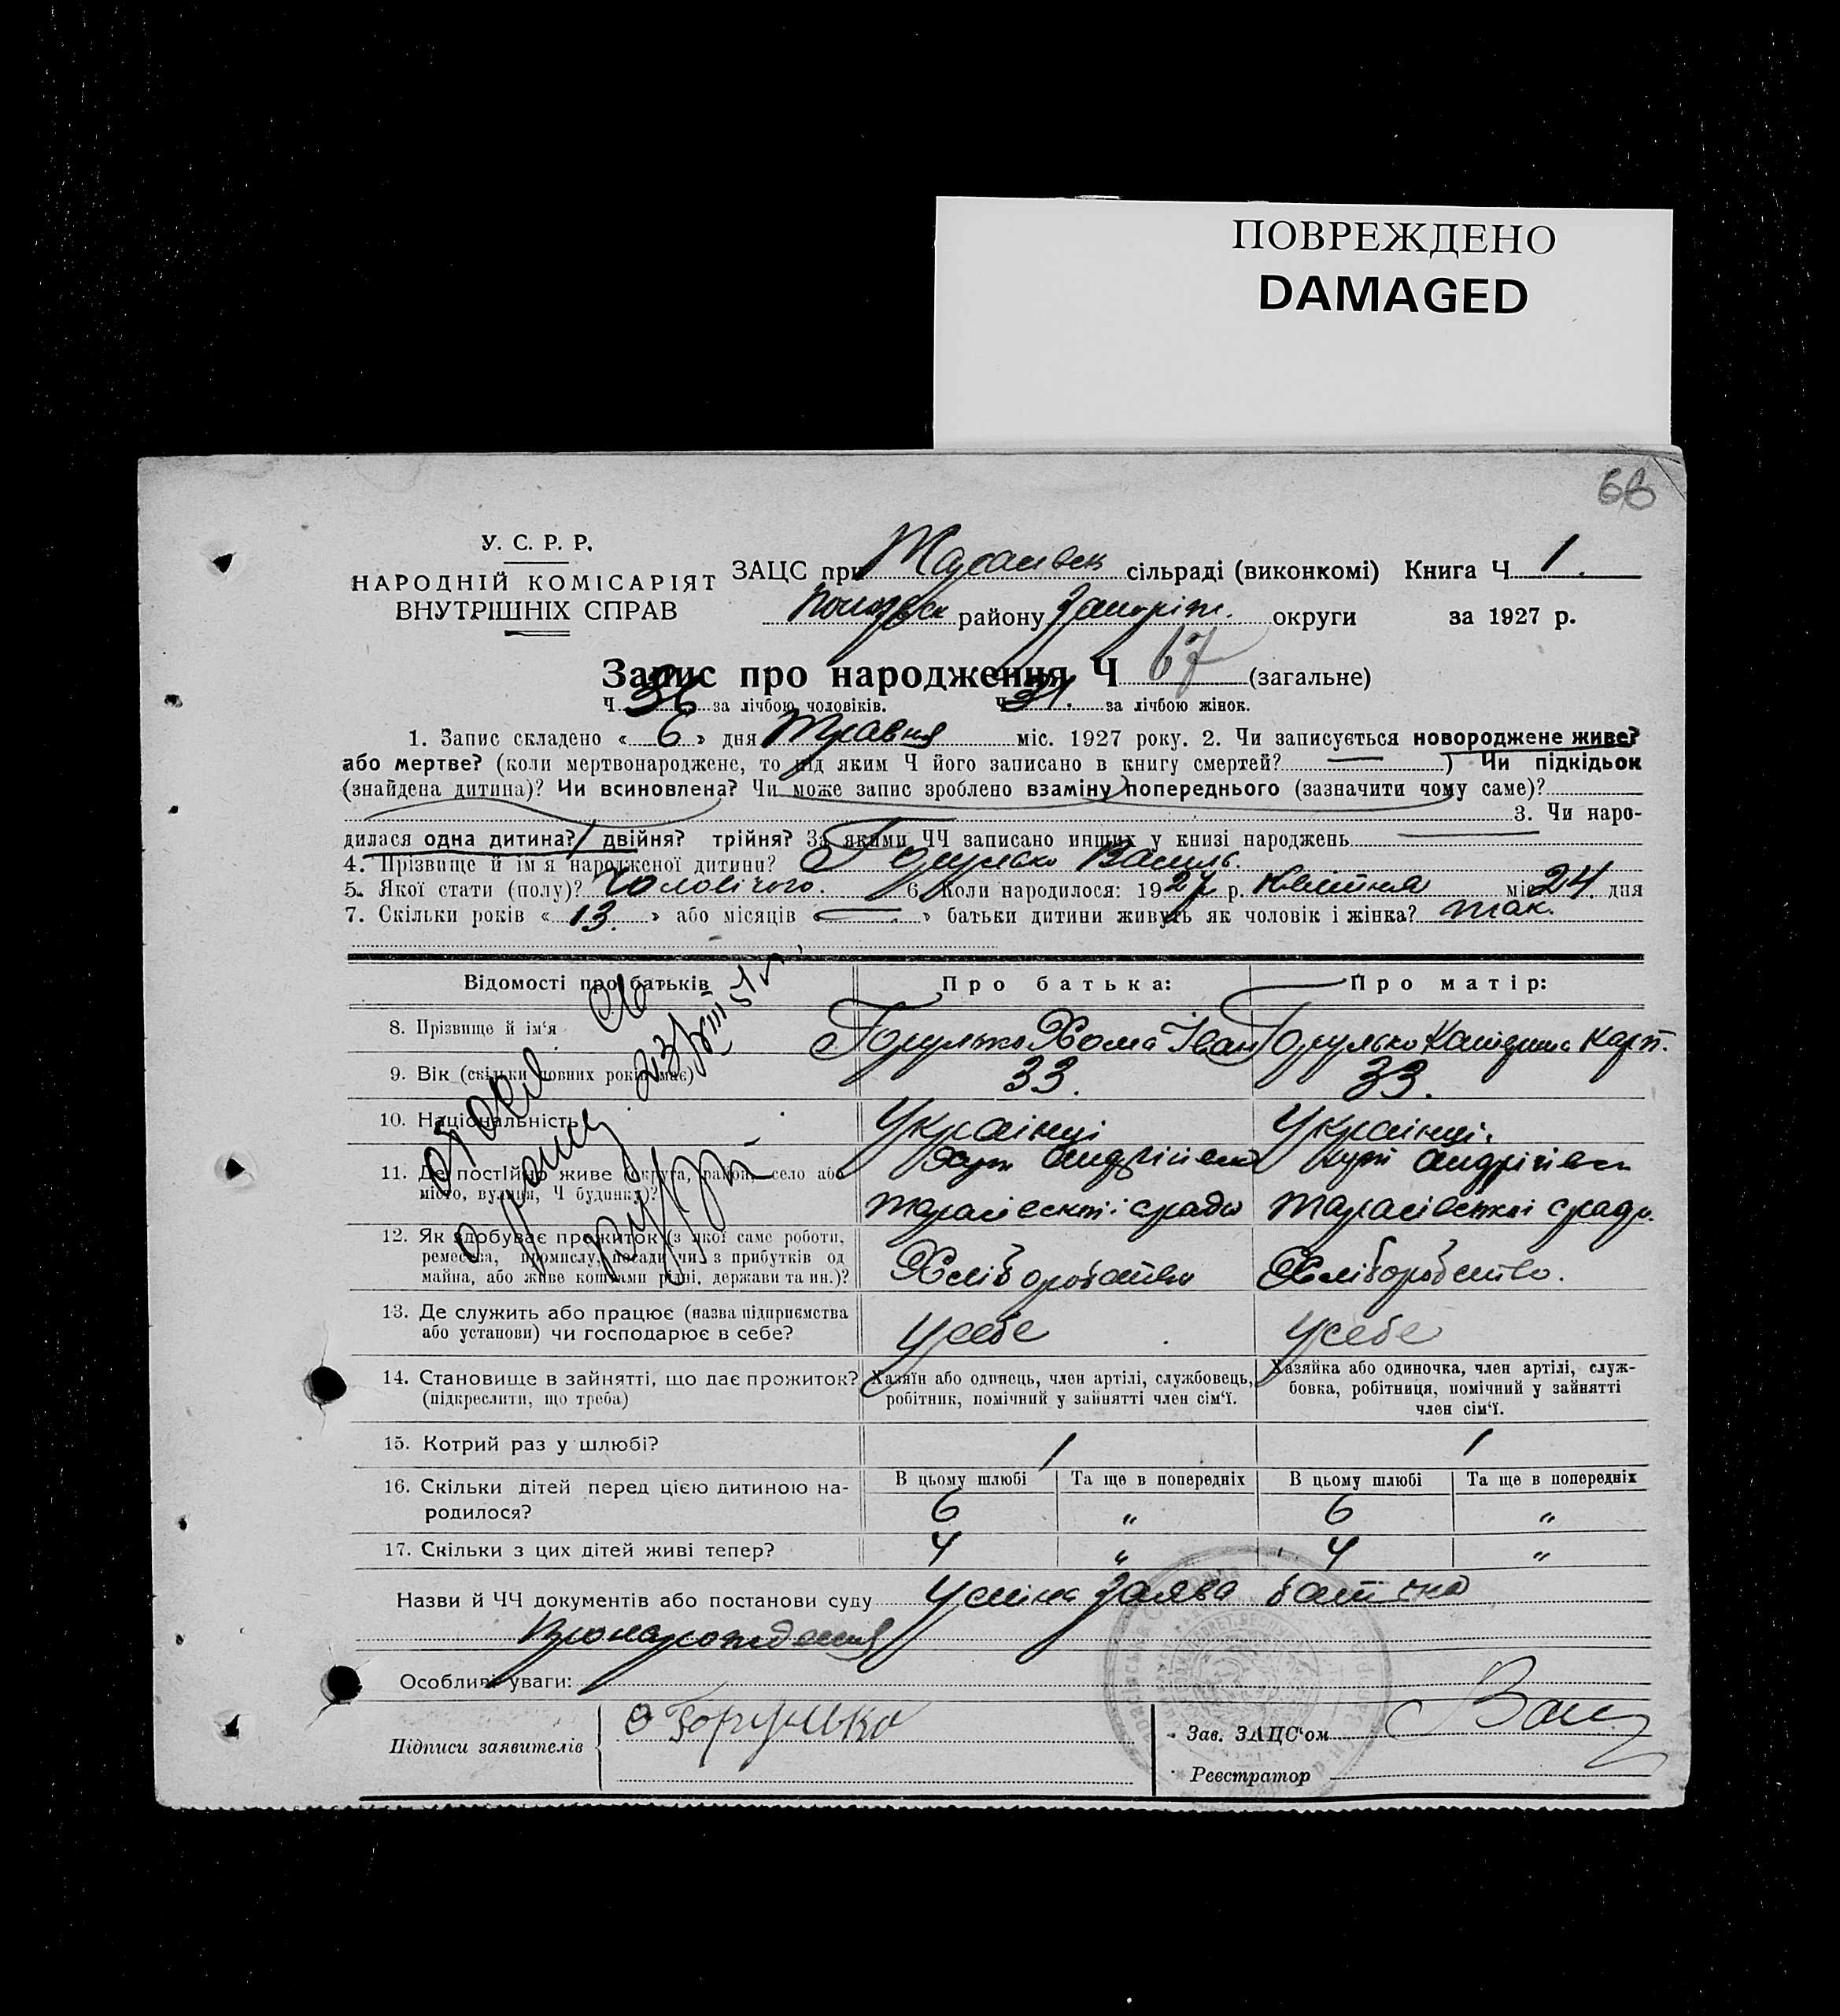 ПОВРЕЖДЕНО
DAMAGED
68
У. С. Р. Р.
НАРОДНІЙ КОМІСАРІЯТ
ВНУТРІШНІХ СПРАВ
ЗАЦС при Тарасівск сільраді (виконкомі) Книга Ч 1.
району Запоріж. округи за 1927 р.
Запис про народження Ч 67 (загальне)
Ч 36 за лічбою чоловіків. Ч 31. за лічбою жінок.
1. Запис складено « 6 » дня Травня міс. 1927 року. 2. Чи записується новороджене живе?
або мертве? (коли мертвонароджене, то під яким Ч його записано в книгу смертей? — ) Чи підкідьок
(знайдена дитина)? Чи всиновлена? Чи може запис зроблено взаміну попереднього (зазначити чому саме)?
3. Чи наро-
дилася одна дитина? двійня? трійня? За якими ЧЧ записано инших у книзі народжень
4. Прізвище й ім'я народженої дитини? Горулько Василь.
5. Якої стати (полу)? Чоловічого. 6. Коли народилося: 1927 р. Квітня міс 24. дня
7. Скільки років « 13. » або місяців « — » батьки дитини живуть як чоловік і жінка? Так.
Відомості про батьків
Про батька:
Про матір:
8. Прізвище й ім'я Горулько Хома Іван Горулько Катерина Карп.
9. Вік (скільки повних років має) 33. 33.
10. Національність Українці Українці.
11. Де постійно живе (округа, район, село або місто, вулиця, Ч будинку)?
Хут Андріївка хут Андріївка
Тарасівської сради Тарасівської сради.
12. Як здобуває прожиток (з якої саме роботи,
ремесва, промислу, посади чи з прибутків од
майна, або живе коштами рідні, держави та ин.)?
Хліборобство Хліборобство.
13. Де служить або працює (назва підприємства
або установи) чи господарює в себе?
У себе У себе
14. Становище в зайнятті, що дає прожиток?
(підкреслити, що треба)
Хазяїн або одинець, член артілі, службовець,
робітник, помічний у зайнятті член сім'ї.
Хазяйка або одиночка, член артілі, служ-
бовка, робітниця, помічний у зайнятті
член сім'ї.
15. Котрий раз у шлюбі? 1 1
В цьому шлюбі Та ще в попередніх В цьому шлюбі Та ще в попередніх
16. Скільки дітей перед цією дитиною на-
родилося?
6 „ 6 „
17. Скільки з цих дітей живі тепер? 4 „ 4 „
Назви й ЧЧ документів або постанови суду Усна заява батька
Про народження
Особливі уваги:
Підписи заявителів Горулько
Зав. ЗАЦС'ом
Реєстратор